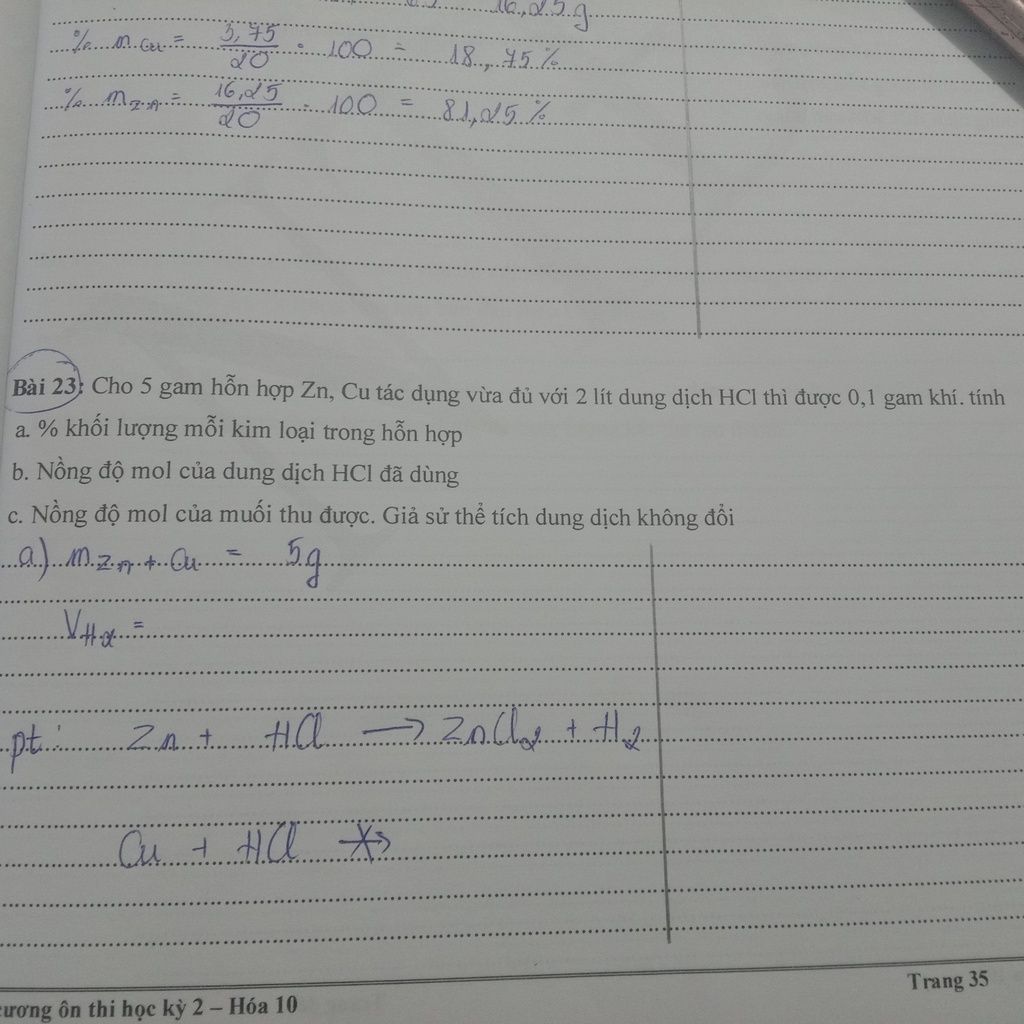 16,25 g
% m Cu = 3,75/20 . 100 = 18,75 %
% m Zn = 16,25/20 . 100 = 81,25 %
Bài 23: Cho 5 gam hỗn hợp Zn, Cu tác dụng vừa đủ với 2 lít dung dịch HCl thì được 0,1 gam khí. tính
a. % khối lượng mỗi kim loại trong hỗn hợp
b. Nồng độ mol của dung dịch HCl đã dùng
c. Nồng độ mol của muối thu được. Giả sử thể tích dung dịch không đổi
a) m Zn + Cu = 5g
V HCl =
pt: Zn + HCl → ZnCl2 + H2
Cu + HCl ↛
ương ôn thi học kỳ 2 – Hóa 10
Trang 35